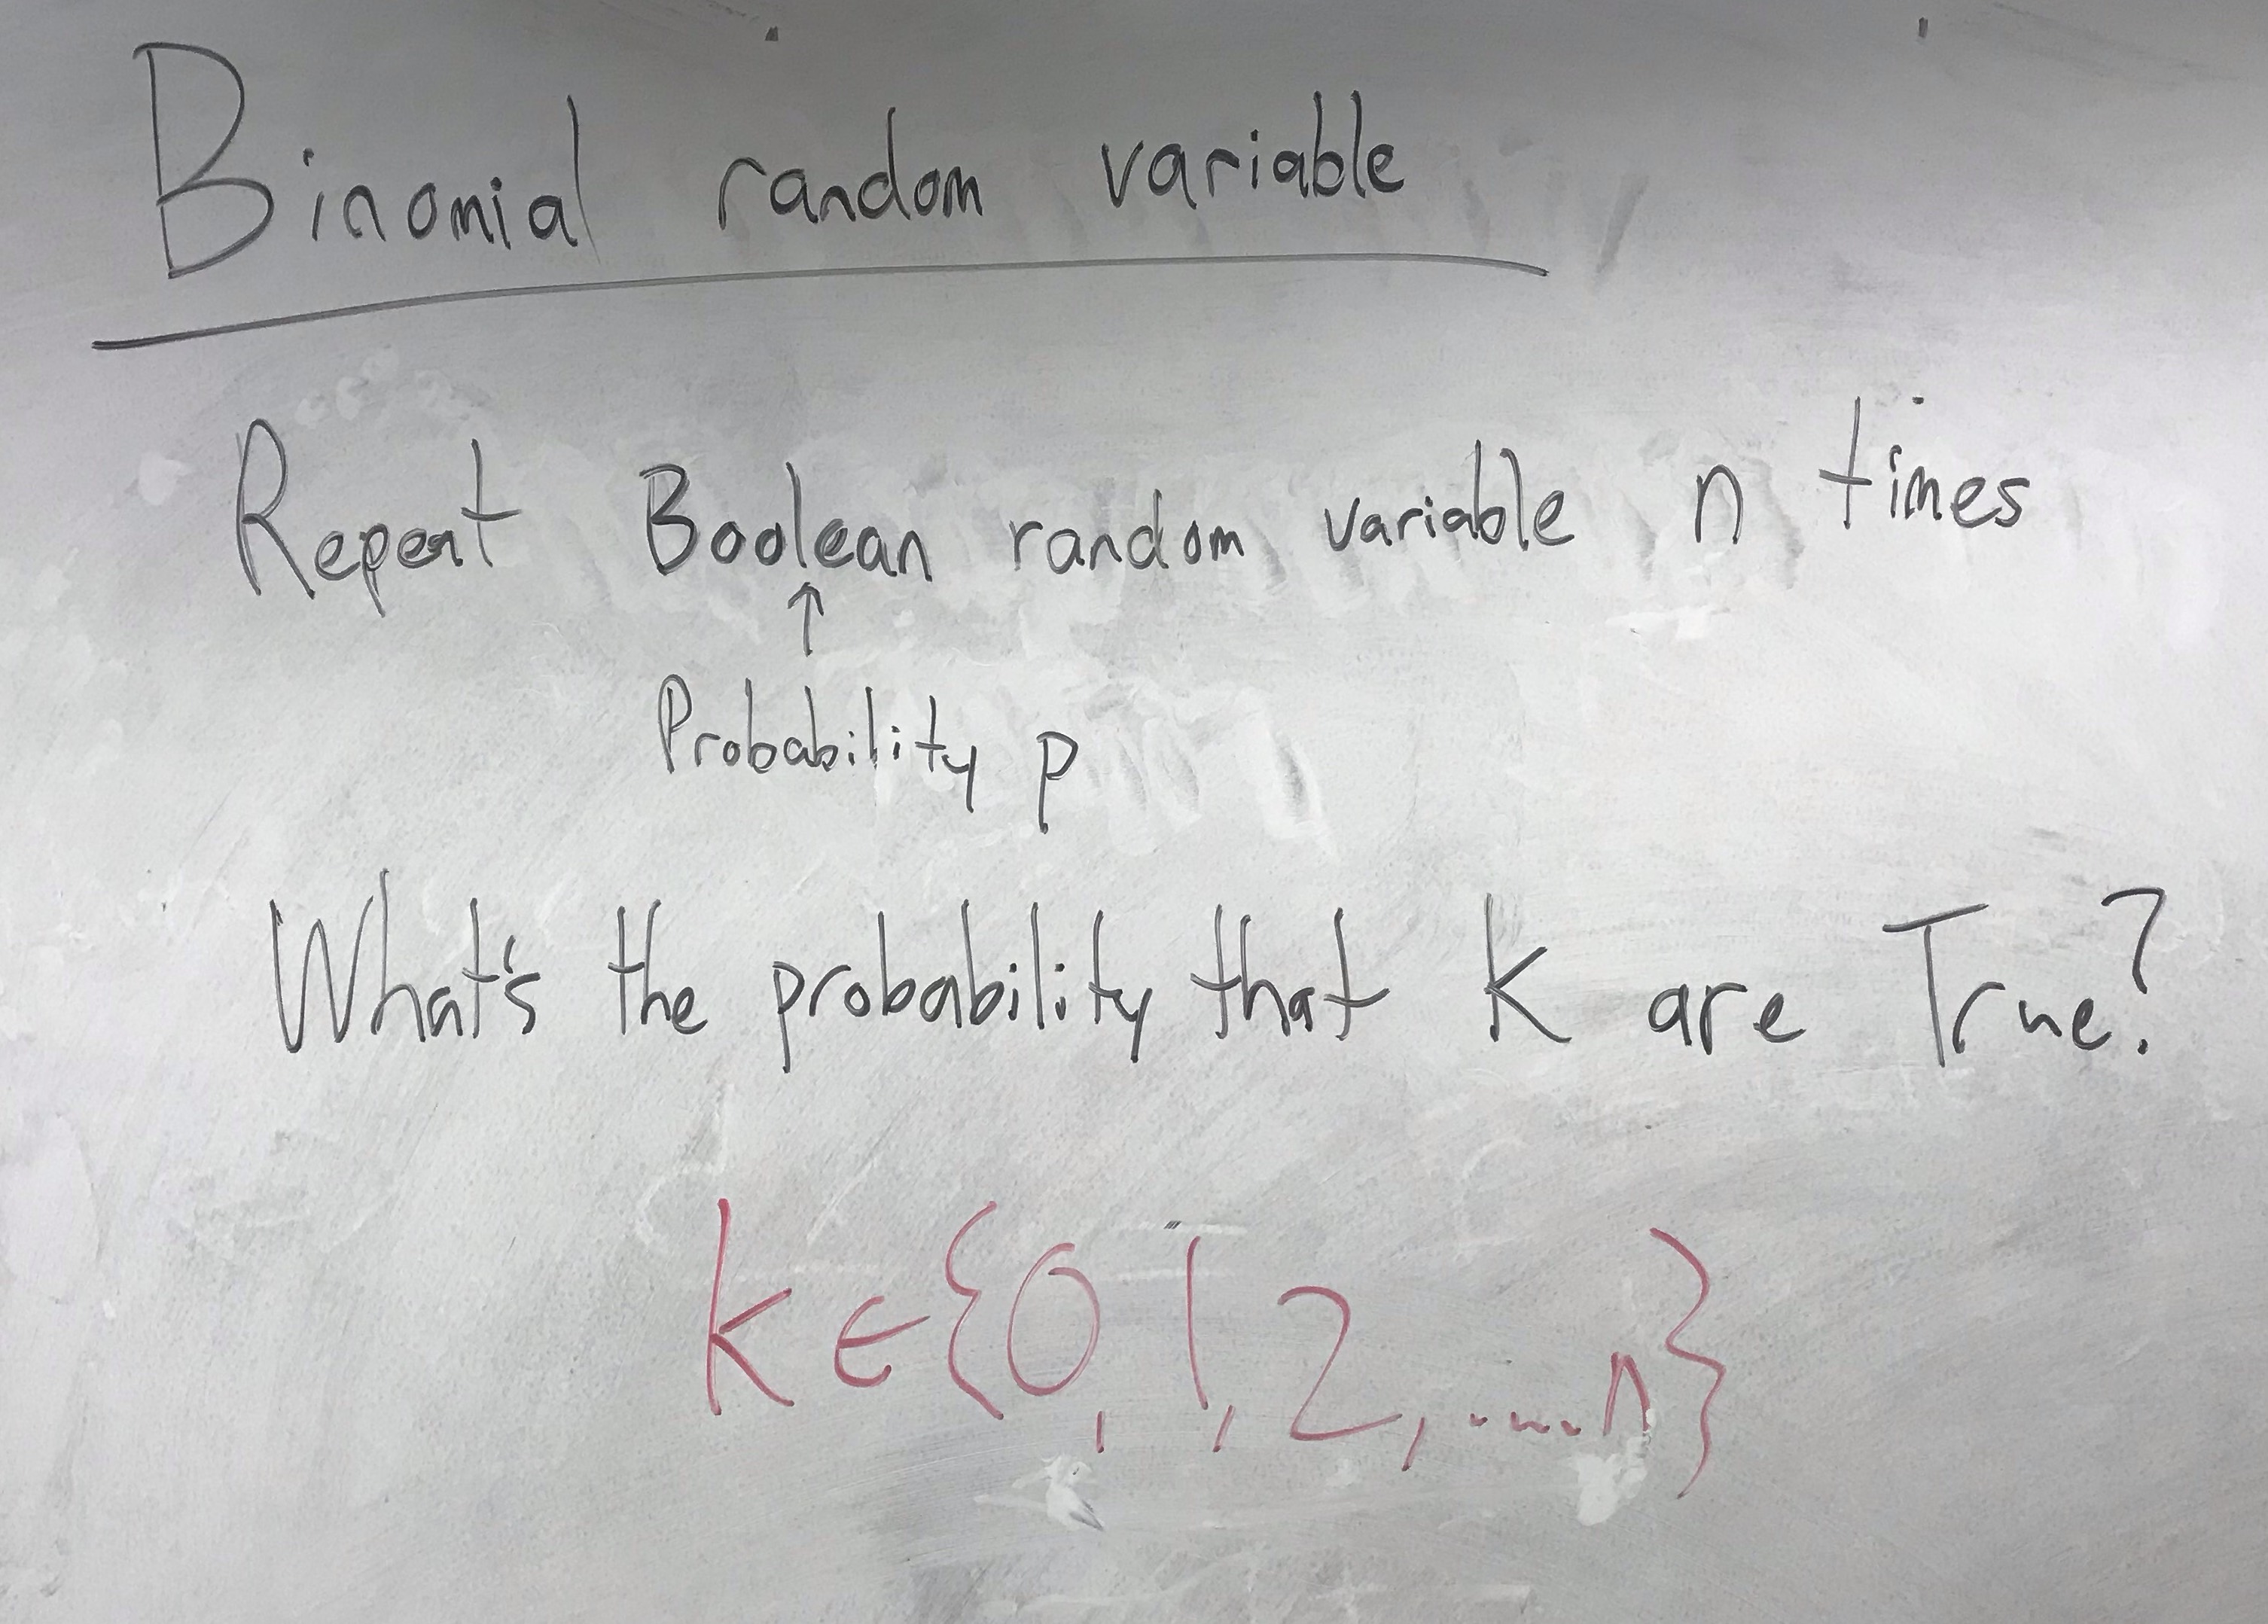 Binomial random variable
Repeat Boolean random variable n times
↑
Probability p
What's the probability that k are True?
k ∈ {0, 1, 2, .... n}